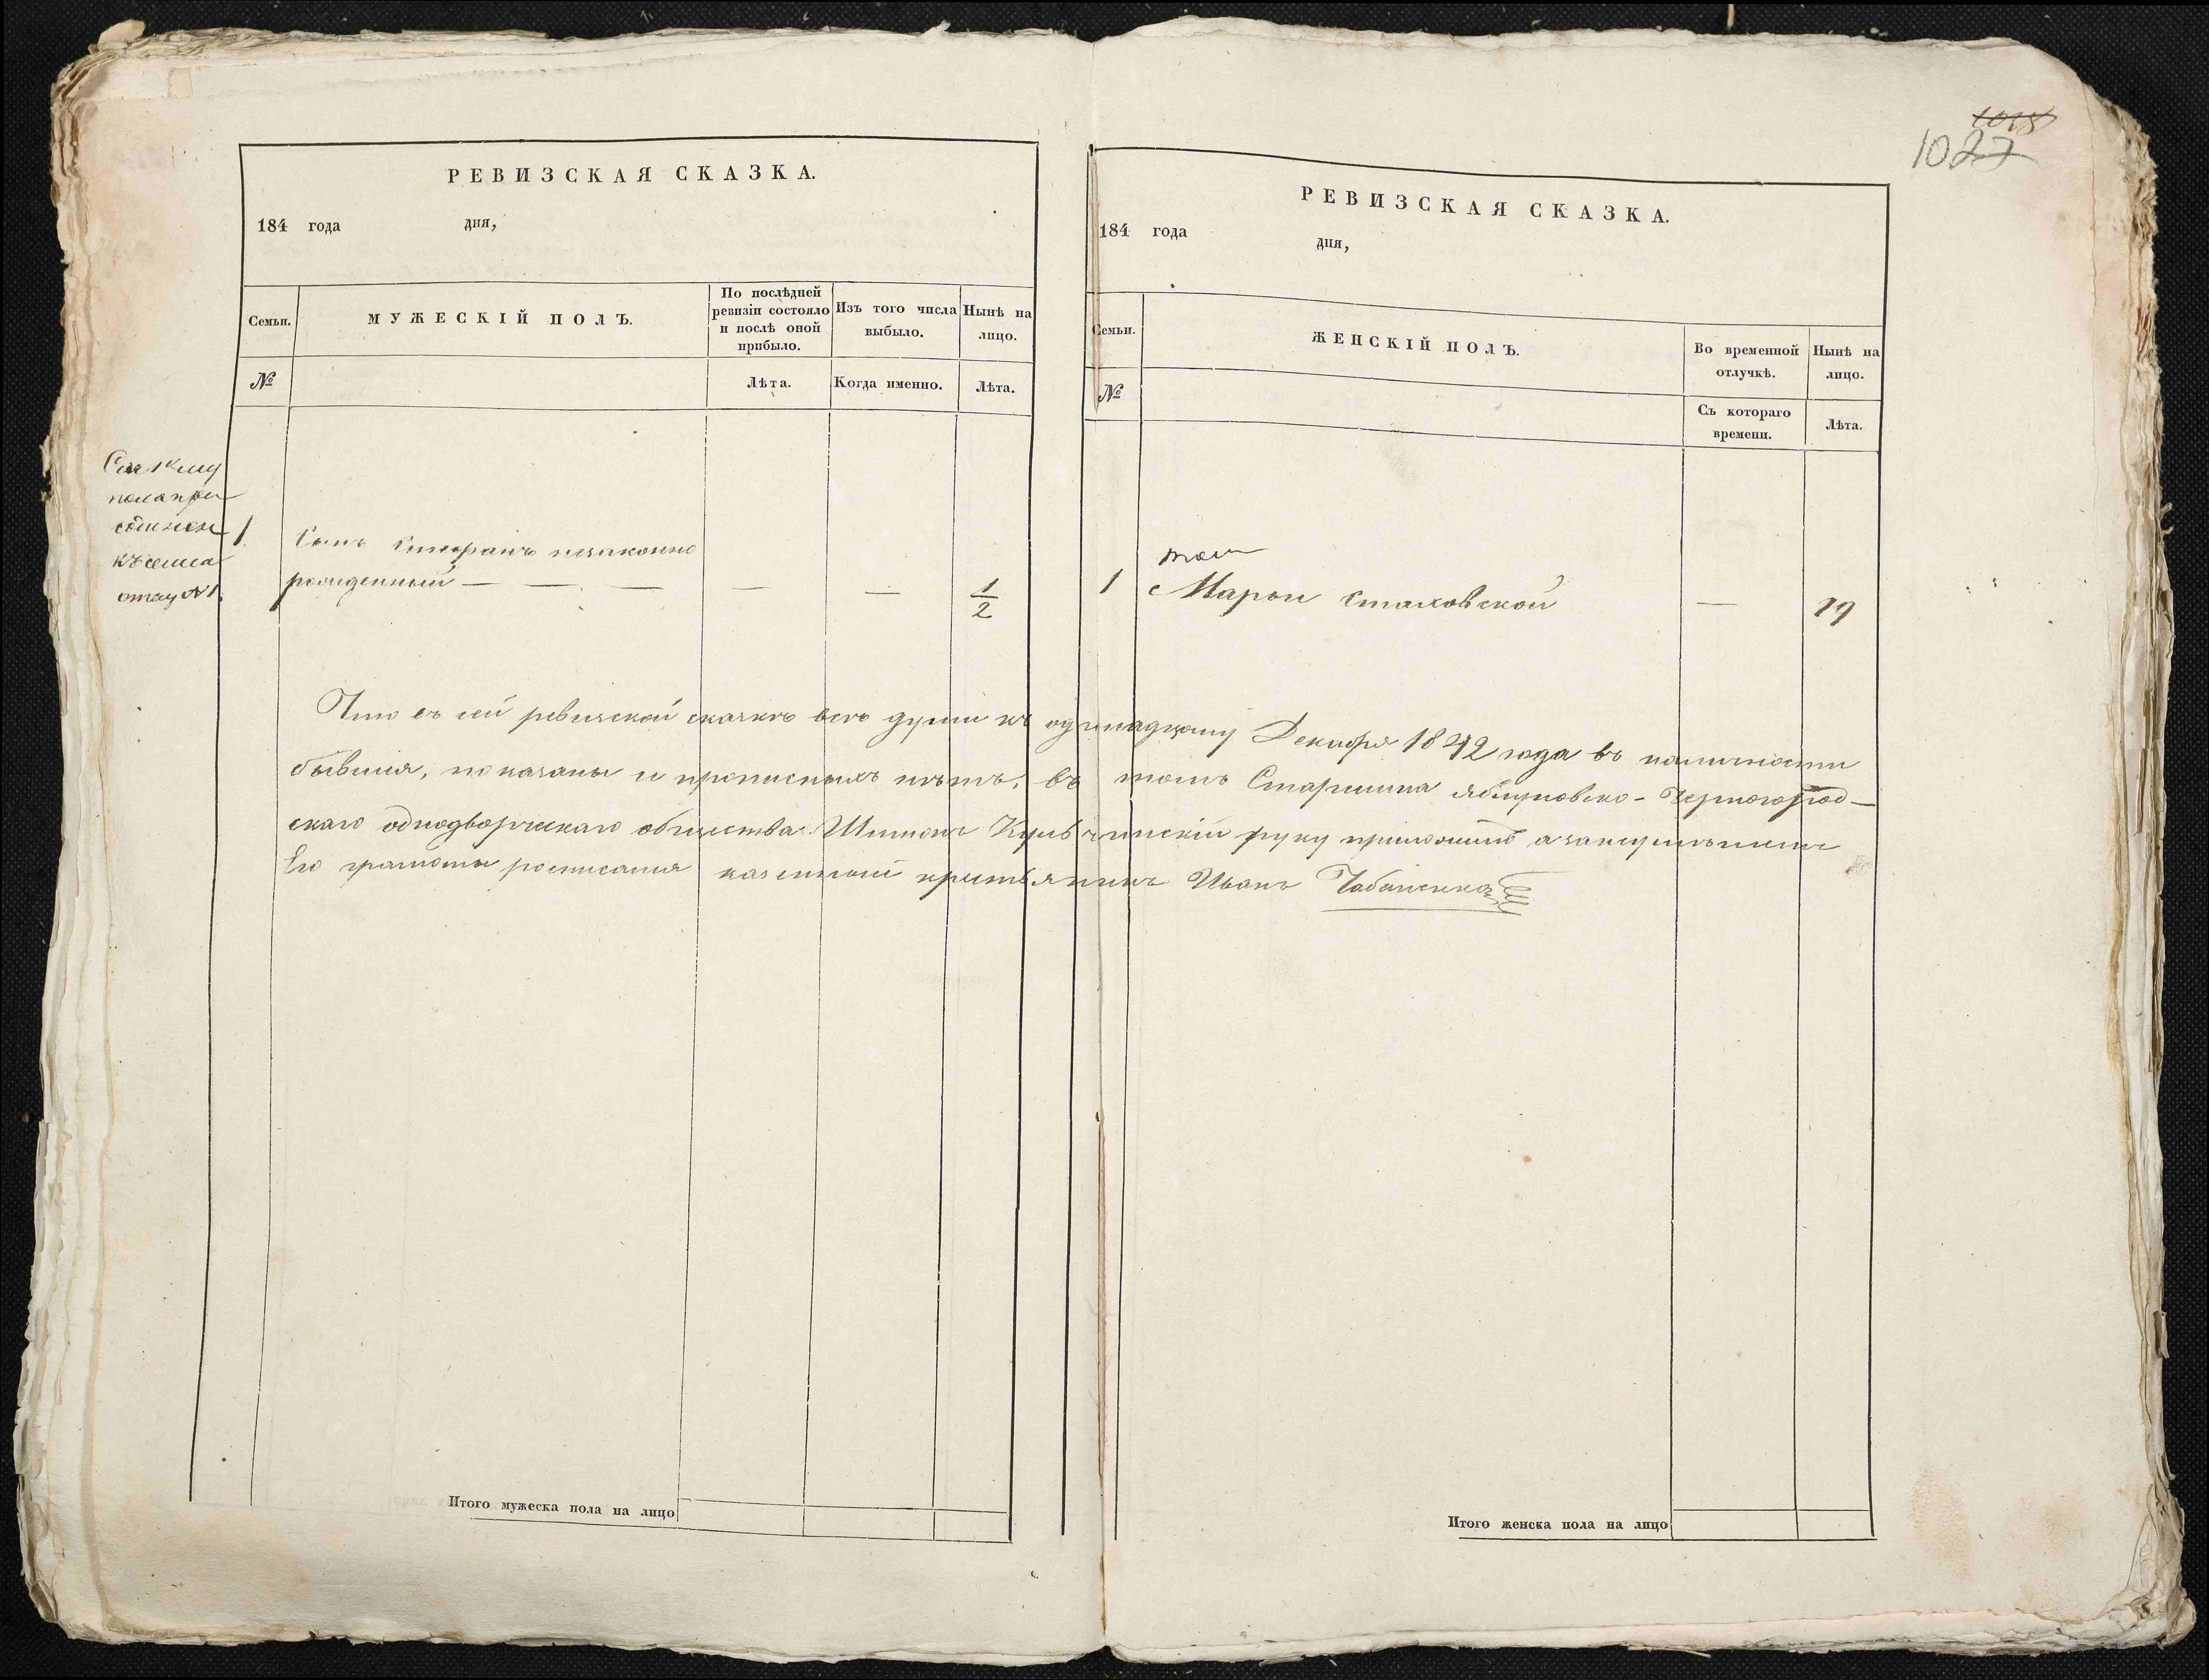 1028
1027
РЕВИЗСКАЯ СКАЗКА.
184 года дня,
Семьи.
МУЖЕСКІЙ ПОЛЪ.
По послѣдней ревизіи состояло и послѣ оной прибыло.
Изъ того числа выбыло.
Нынѣ на лицо.
№
Лѣта.
Когда именно.
Лѣта.
пола при
къ семьѣ
1. Сынъ незаконно
рожденный — — — — — 1/2
РЕВИЗСКАЯ СКАЗКА.
184 года дня,
Семьи.
ЖЕНСКІЙ ПОЛЪ.
Во временной отлучкѣ.
Нынѣ на лицо.
№
Съ котораго времени.
Лѣта.
1 Марьи Стаховской — 19
Что въ сей ревизской сказкѣ всѣ души къ одинадцатому Декабря 1842 года въ наличности
бывшія, показаны и прописныхъ нѣтъ, въ томъ Старшина Яблуновско-Черногород-
скаго однодворческаго общества руку приложилъ а за неумѣніемъ
Его грамоты росписался казенный крестьянинъ Иванъ Чабаненко
Итого мужеска пола на лицо
Итого женска пола на лицо